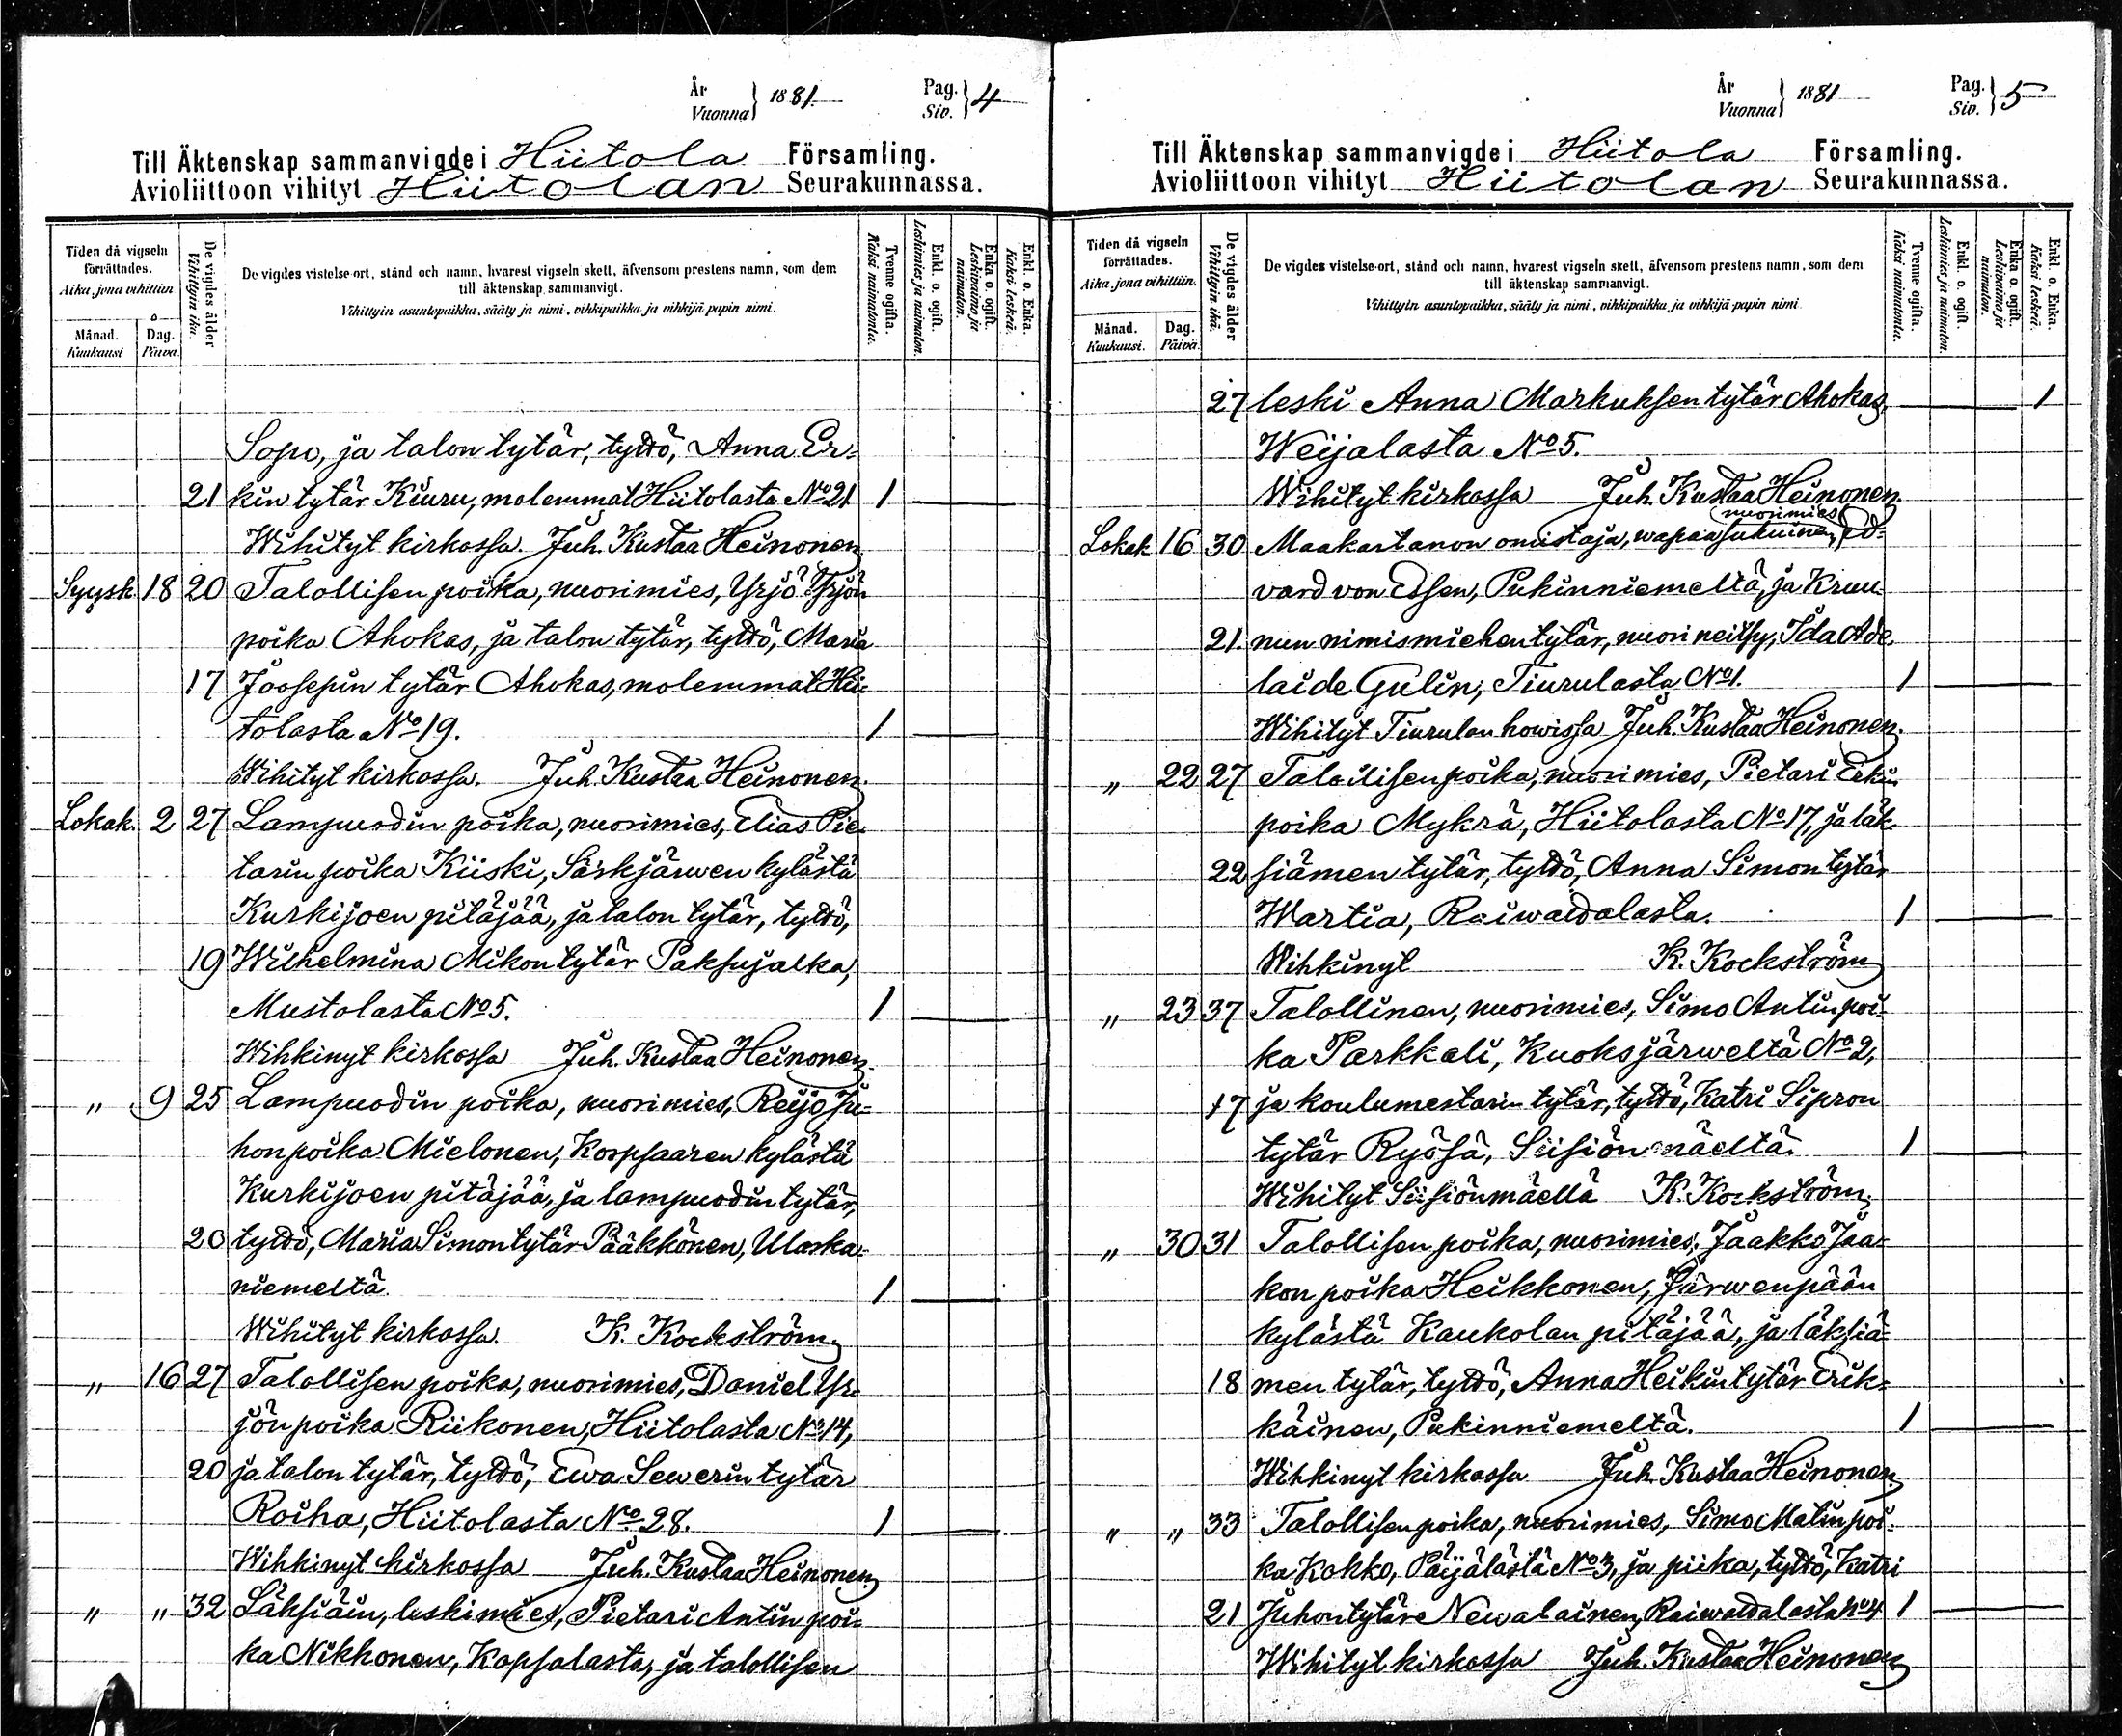 År
Vuonna } 1881
Pag.
Siv. } 4
Till Äktenskap sammanvigde i Hiitola Församling.
Avioliittoon vihityt Hiitolan Seurakunnassa.
Tiden då vigseln förrättades.
Aika, jona vihittiin
Månad.
Kuukausi
Dag.
Päivä.
De vigdes ålder
Vihittyin ikä.
De vigdes vistelse-ort, stånd och namn, hvarest vigseln skett, äfvensom prestens namn, som dem
till äktenskap sammanvigt.
Vihittyin asuntopaikka, sääty ja nimi, vihkipaikka ja vihkijä-papin nimi.
Tvenne ogifta.
Kaksi naimatonta.
Enkl. o. ogift.
Leskimies ja naimaton.
Enka o. ogift.
Leskivaimo ja naimaton.
Enkl. o. Enka.
Kaksi leskeä.
Sopo, ja talon tytär, tyttö, Anna Er-
21 kin tytär Kiuru, molemmat Hiitolasta No 21 1
Wihityt kirkossa. Juh. Kustaa Heinonen
Syysk. 18 20 Talollisen poika, nuorimies, Yrjö Yrjön
poika Ahokas, ja talon tytär, tyttö, Maria
17 Joosepin tytär Ahokas, molemmat Hii-
tolasta No 19. 1
Wihityt kirkossa. Juh. Kustaa Heinonen.
Lokak. 2 27 Lampuodin poika, nuorimies, Elias Pie-
tarin poika Kiiski, Särkjärwen kylästä
Kurkijoen pitäjää, ja talon tytär, tyttö,
19 Wilhelmina Mikon tytär Paksujalka,
Mustolasta No 5. 1
Wihkinyt kirkossa Juh. Kustaa Heinonen.
" 9 25 Lampuodin poika, nuorimies, Reijo Ju-
hon poika Mielonen, Korpsaaren kylästä
Kurkijoen pitäjää, ja lampuodin tytär,
20 tyttö, Maria Simon tytär Pääkkönen, Ulaska-
niemeltä. 1
Wihityt kirkossa. K. Kockström
" 16 27 Talollisen poika, nuorimies, Daniel Yr-
jön poika Riikonen, Hiitolasta No 14,
20 ja talon tytär, tyttö, Ewa Sewerin tytär
Roiha, Hiitolasta No 28. 1
Wihkinyt kirkossa Juh. Kustaa Heinonen.
" " 32 Läksiäin, leskimies, Pietari Antin poi-
ka Nikkonen, Kopsalasta, ja talollisen
År
Vuonna } 1881
Pag.
Siv. } 5
Till Äktenskap sammanvigde i Hiitola Församling.
Avioliittoon vihityt Hiitolan Seurakunnassa.
Tiden då vigseln förrättades.
Aika, jona vihittiin.
Månad.
Kuukausi.
Dag.
Päivä.
De vigdes ålder
Vihittyin ikä.
De vigdes vistelse-ort, stånd och namn, hvarest vigseln skett, äfvensom prestens namn, som dem
till äktenskap sammanvigt.
Vihittyin asuntopaikka, sääty ja nimi, vihkipaikka ja vihkijä-papin nimi.
Tvenne ogifta.
Kaksi naimatonta.
Enkl. o. ogift.
Leskimies ja naimaton.
Enka o. ogift.
Leskivaimo ja naimaton.
Enkl. o. Enka.
Kaksi leskeä.
27 leski Anna Markuksen tytär Ahokas, 1
Weijalasta No 5.
Wihityt kirkossa Juh. Kustaa Heinonen.
nuorimies
Lokak. 16 30 Maakartanon omistaja, wapaasukuinen, Ed-
vard von Essen, Pukinniemeltä, ja Kruu-
21. nun nimismiehen tytär, nuori neitsy, Ida Ade-
laide Gulin, Tiurulasta No 1. 1
Wihityt Tiurulan howissa Juh. Kustaa Heinonen.
" 22 27 Talollisen poika, nuorimies, Pietari Erkin
poika Mykrä, Hiitolasta No 17, ja läk-
22 siämen tytär, tyttö, Anna Simon tytär
Wartia, Raiwattalasta. 1
Wihkinyt K. Kockström
" 23 37 Talollinen, nuorimies, Simo Antin poi-
ka Parkkali, Kuoksjärweltä No 2,
17 ja koulumestarin tytär, tyttö, Katri Sipron
tytär Ryösä, Siisiönmäeltä. 1
Wihityt Siisiönmäellä K. Kockström.
" 30 31 Talollisen poika, nuorimies, Jaakko Jaa-
kon poika Heikkonen, Järwenpään
kylästä Kaukolan pitäjää, ja läksiä-
18 men tytär, tyttö, Anna Heikin tytär Erik-
käinen, Pukinniemeltä. 1
Wihkinyt kirkossa Juh. Kustaa Heinonen
" " 33 Talollisen poika, nuorimies, Simo Matin poi-
ka Kokko, Päijälästä No 3, ja piika, tyttö, Katri
21 Juhon tytär Newalainen, Raiwattalasta No 4 1
Wihityt kirkossa Juh. Kustaa Heinonen